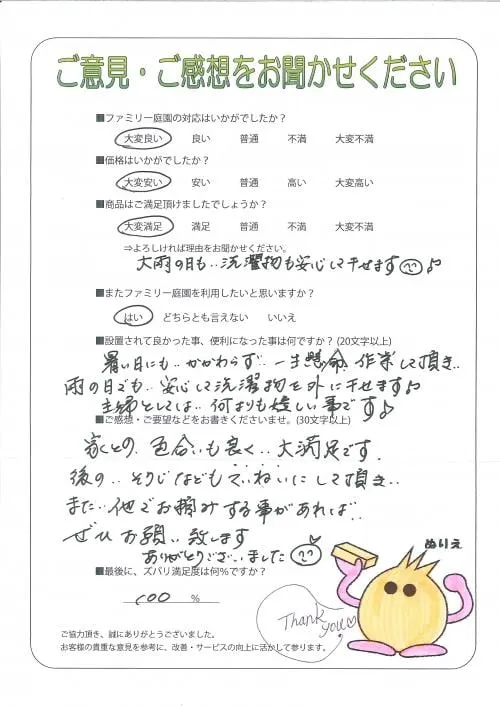 ご意見・ご感想をお聞かせください
■ファミリー庭園の対応はいかがでしたか？
大変良い 良い 普通 不満 大変不満
■価格はいかがでしたか？
大変安い 安い 普通 高い 大変高い
■商品はご満足頂けましたでしょうか？
大変満足 満足 普通 不満 大変不満
⇒よろしければ理由をお聞かせください。
大雨の日も‥洗濯物も安心して干せます♪
■またファミリー庭園を利用したいと思いますか？
はい どちらとも言えない いいえ
■設置されて良かった事、便利になった事は何ですか？(20文字以上)
暑い日にも‥かかわらず‥一生懸命 作業して頂き‥
雨の日でも‥安心して洗濯物を外に干せます♪
主婦としては‥何よりも嬉しい事です♪
■ご感想・ご要望などをお書きくださいませ。(30文字以上)
家との 色合いも良く‥大満足です。
後の‥そうじなども ていねいにして頂き‥
また‥他でお頼みする事があれば‥
ぜひ お願い致します
ありがとうございました
■最後に、ズバリ満足度は何%ですか？
100 %
ぬりえ
Thank you♡
ご協力頂き、誠にありがとうございました。
お客様の貴重な意見を参考に、改善・サービスの向上に活かして参ります。